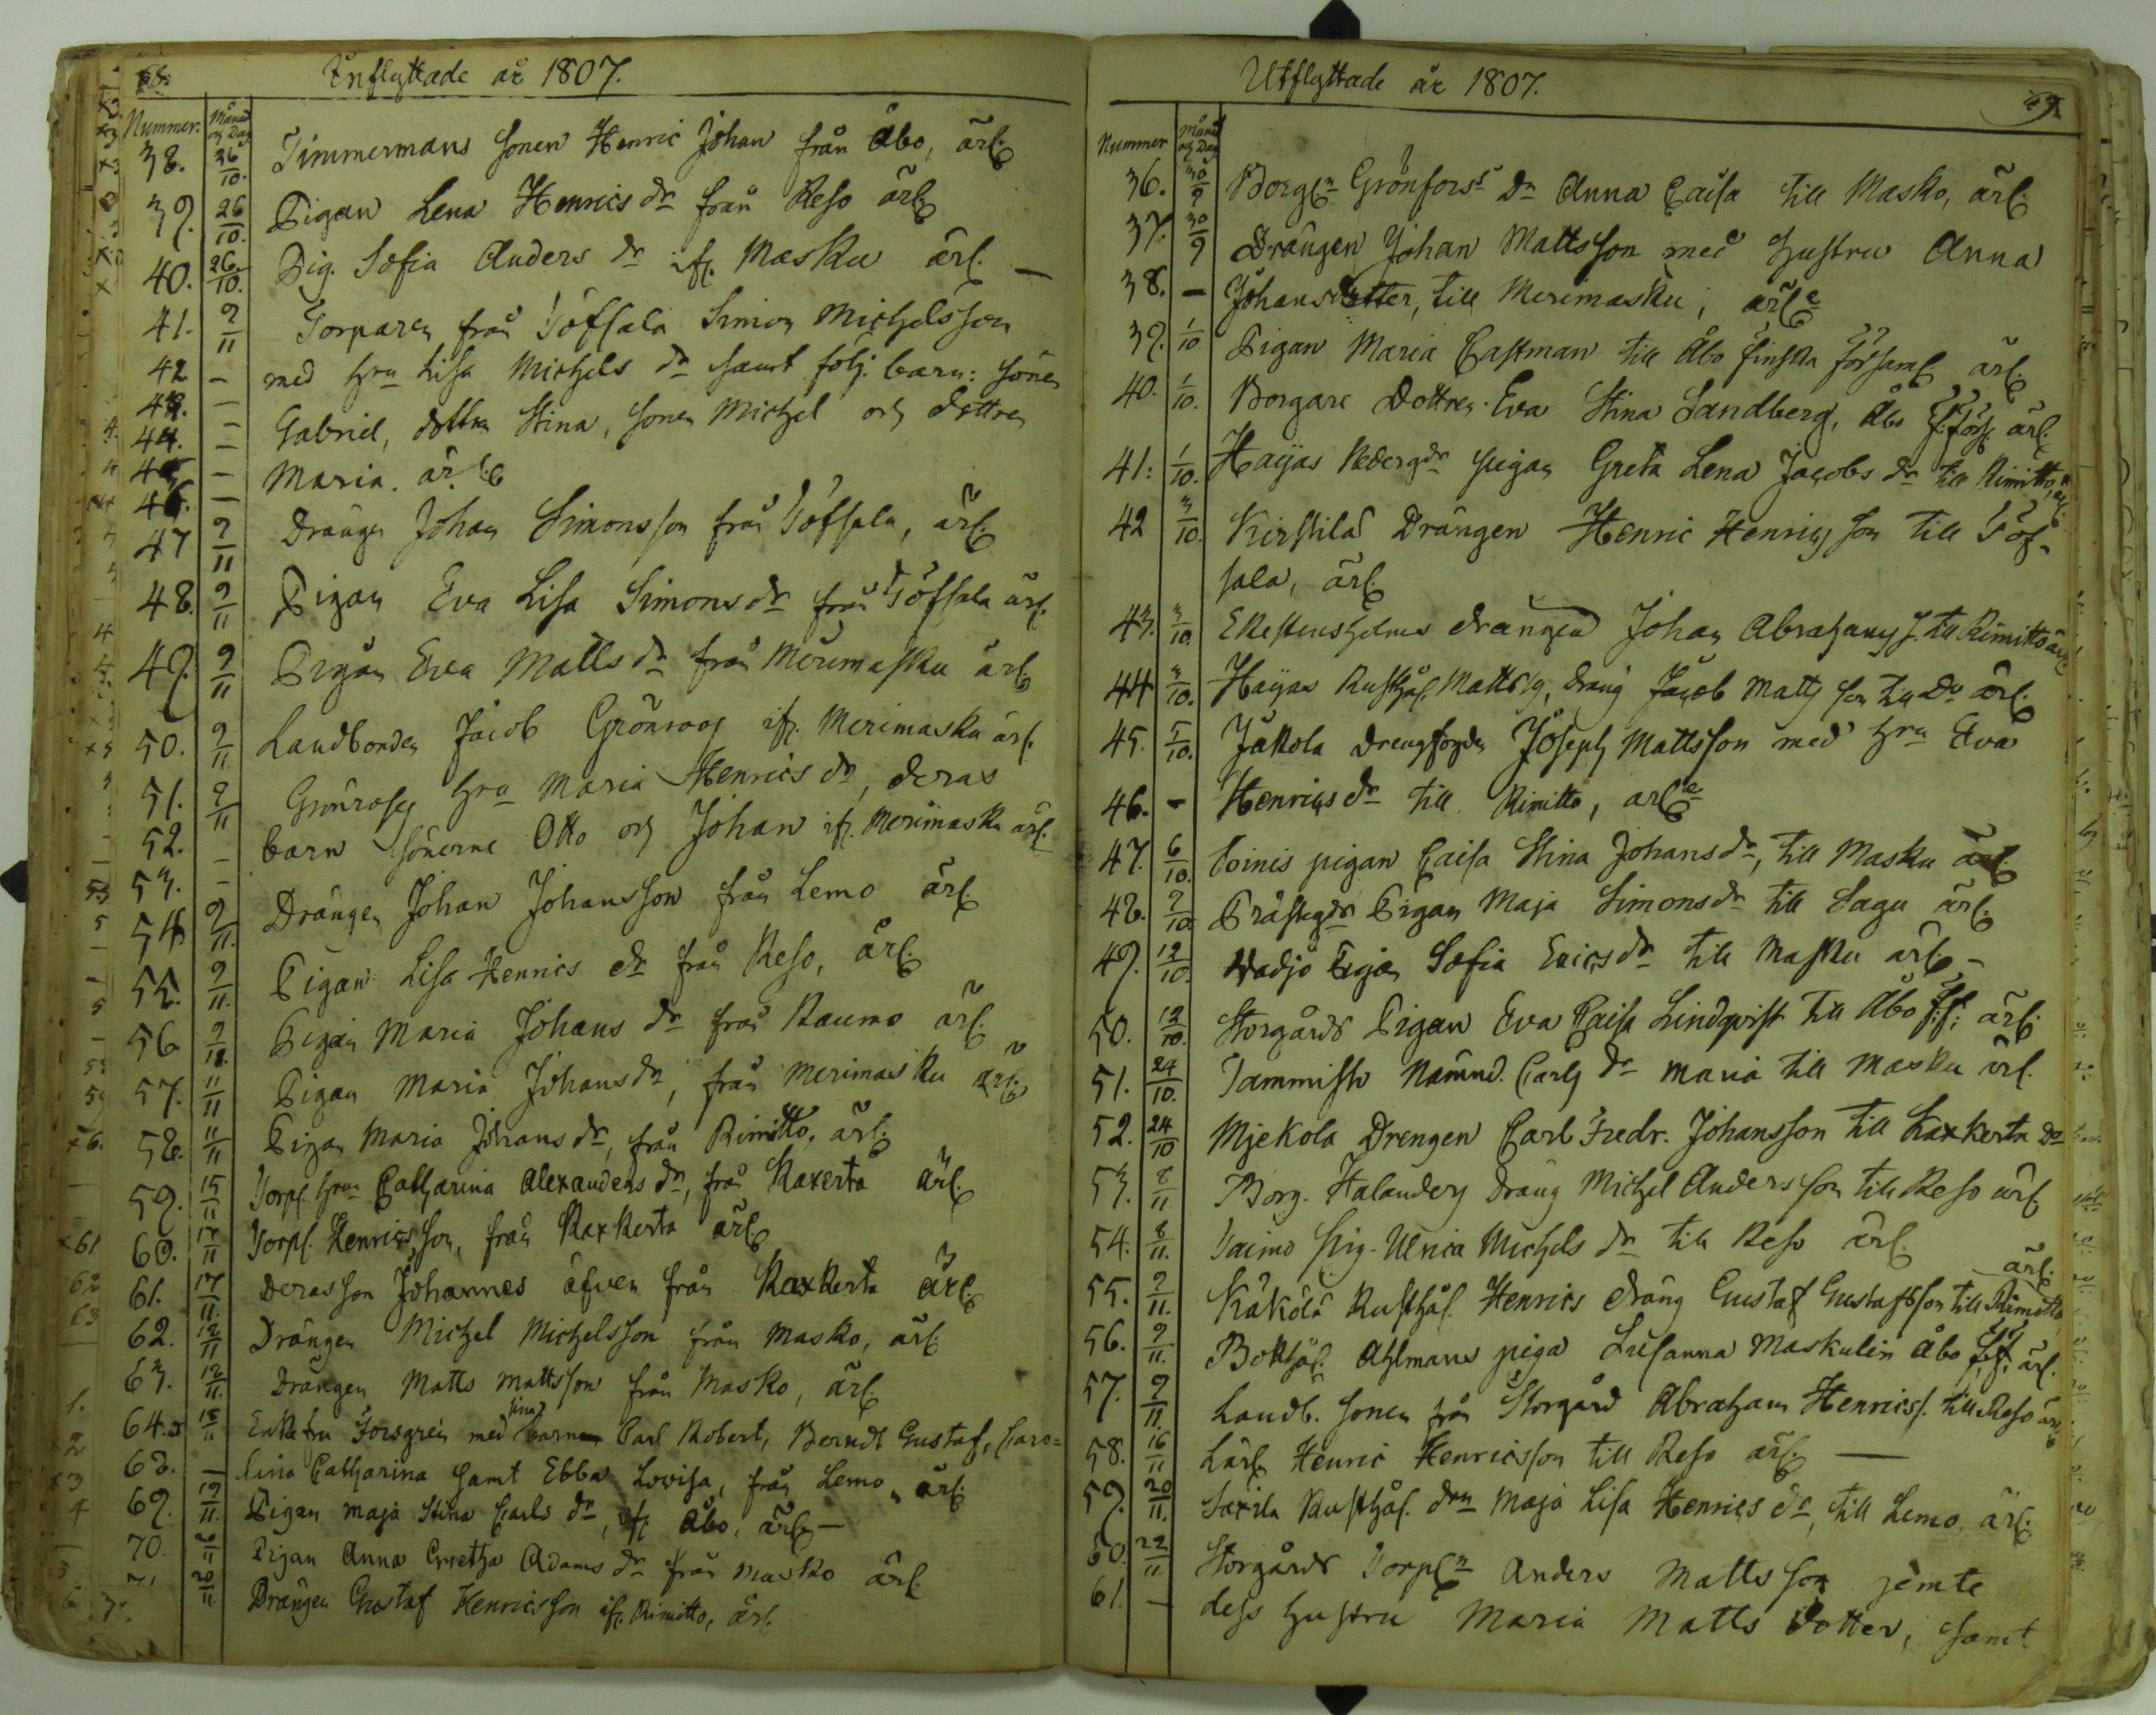 Inflyttade år 1807.
Nummer. Månad och Dag
38. 26/10. Timmermans sonen Henric Johan från Åbo, ärl.
39. 26/10. Pigan Lena Henrics dr från Reso ärl.
40. 26/10. Pig. Sofia Anders dr ifr. Masku ärl. —
41. 9/11 Torparen från Töfsala Simon Michelsson
42 — med hru Lisa Michels dr samt följ. barn: sonen
43. — Gabriel, dottren Stina, sonen Michel och dottren
44. —
45. — Maria. ärl.
46. —
47 9/11 Drängen Johan Simonsson från Töfsala, ärl.
48. 9/11 Pigan Eva Lisa Simons dr från Töfsala ärl.
49. 9/11 Pigan Eva Matts dr från Merimasku ärl.
50. 9/11 Landbonden Jacob Grönroos ifr. Merimasku ärl.
51. 9/11 Grönroos hru Maria Henrics dr, deras
52. — barn sönerne Otto och Johan ifr. Merimasku ärl.
53. —
54 9/11. Drängen Johan Johansson från Lemo ärl.
55. 9/11. Pigan Lisa Henrics dr från Reso, ärl.
56 9/11. Pigan Maria Johans dr från Raumo ärl.
57. 11/11 Pigan Maria Johans dr, från Merimasku ärl.
58. 11/11 Pigan Maria Johans dr, från Rimitto, ärl.
59. 15/11 Torp. hru Catharina Alexanders dr, från Raxerta ärl.
60. 17/11 Torp. Henricsson, från Raxkerta ärl.
61. 17/11. Deras son Johannes äfven från Raxkerta ärl.
62. 18/11 Drängen Michel Michelsson från Masko, ärl.
63. 18/11. Drängen Matts Mattsson från Masko, ärl.
64. 18/11 Enkefru Forsgren med sina barn Carl Robert, Berndt Gustaf, Caro=
68. — lina Catharina samt Ebba Lovisa, från Lemo, ärl.
69. 19/11. Pigan Maja Stina Carls dr, ifr. Åbo, ärl. —
70. Pigan Anna Gretha Adams dr från Masko ärl.
71 20/11. Drängen Gustaf Henricsson ifr. Rimitto, ärl.
Utflyttade år 1807.
49.
Nummer Månad och Dag
36. 30/9 Borg. Grönforss dr Anna Caisa till Masko, ärl.
37. 30/9 Drängen Johan Mattsson med hustru Anna
38. — Johansdotter, till Merimasku, ärl.
39. 1/10 Pigan Maria Eastman till Åbo finska församl. ärl.
40. 1/10. Borgare Dottren Eva Stina Sandberg, Åbo f. förs. ärl.
41. 1/10. Haijas pigan Greta Lena Jacobs dr till Rimitto, ärl.
42 3/10. Kirstilä Drängen Henric Henricsson till Töf-
sala, ärl.
43. 3/10. Ekestensholms drängen Johan Abrahams S. till Rimitto ärl.
44 3/10. Haijas Rusthål. Mattss, dräng Jacob Matts son till Do ärl.
45. 5/10. Jakola drengfogden Joseph Mattsson med hru Eva
46. — Henrics dr till Rimitto, ärl.
47. 6/10. Coinis pigan Caisa Stina Johans dr, till Masku ärl.
48. 9/10 Prästegds Pigan Maja Simons dr till Sagu ärl.
49. 12/10. Wadjo Pigan Sofia Erics dr till Masku ärl. —
50. 12/10. Storgårds Pigan Eva Caisa Lindqvist till Åbo f. f: ärl.
51. 24/10. Tammisto Nämnd. Carls dr Maria till Masku ärl.
52. 24/10 Mjekola Drengen Carl Fredr. Johansson till Raxkerta Do
53. 8/11 Borg. Halanders dräng Michel Andersson till Reso ärl.
54. 8/11. Taimo pig. Ulrica Michels dr till Reso ärl.
55. 9/11. Käkölä Rusthål. Henrics dräng Gustaf Gustafsson till Rimitto ärl.
56. 9/11. Bokhål. Ahlmans piga Susanna Maskulin Åbo f. f. ärl.
57. 9/11. Landb. sonen från Storgård Abraham Henricss. till Reso ärl.
58. 16/11 Lärl. Henric Henricsson till Reso ärl. —
59. 20/11. Saxila Rusthål. drn Maja Lisa Henrics dr, till Lemo ärl.
60. 22/11 Storgårds Torp. Anders Mattsson jemte
61. — dess hustru Maria Matts dotter, samt